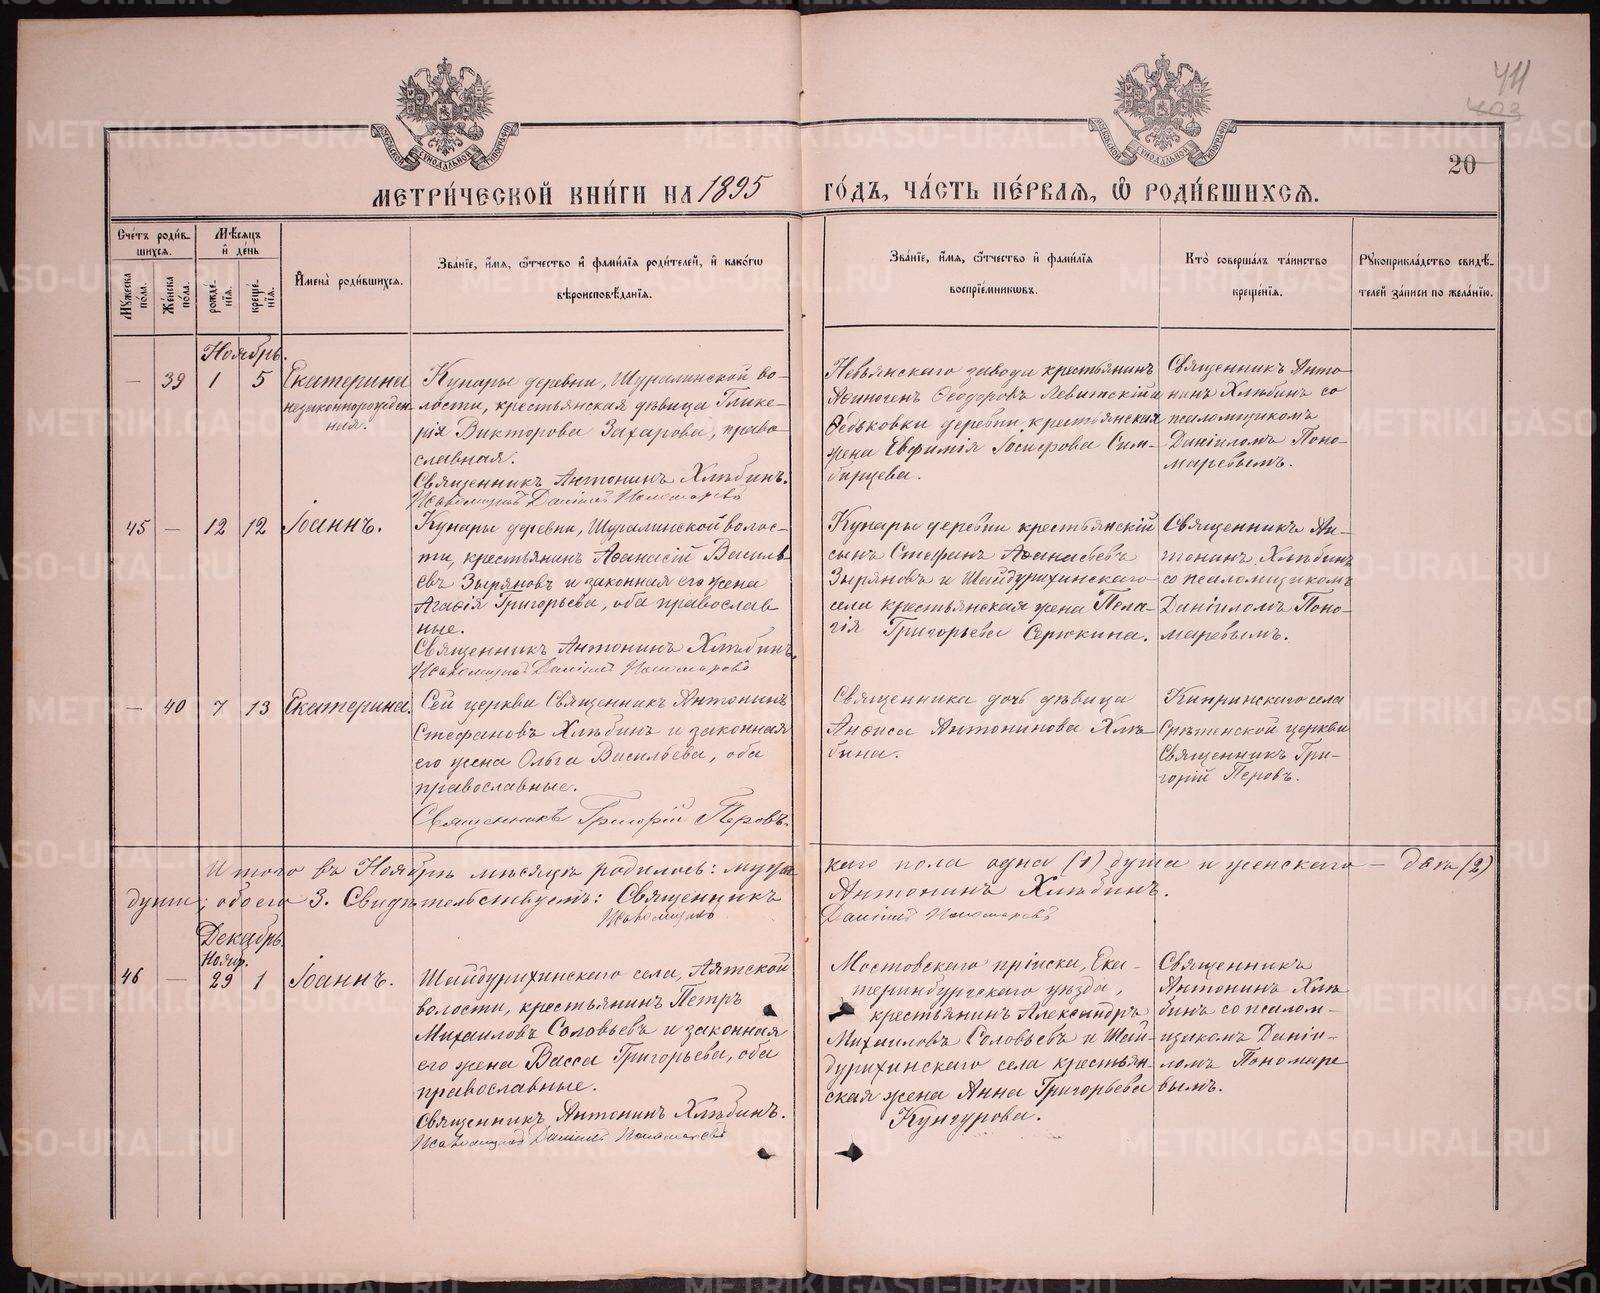 411
403
20
МЕТРИ́ЧЕСКОЙ КНИ́ГИ НА 1895 ГО́ДЪ, ЧА́СТЬ ПЕ́РВАЯ, Ѡ РОДИ́ВШИХСѦ.
Сче́тъ роди́в-
шихся.
Мꙋжеска пола.
Же́нска по́ла.
Мѣ́сяцъ
и҆ де́нь
рожде́-
нїѧ.
креще́-
нїѧ.
И҆мена̀ роди́вшихся.
Зва́нїе, и҆́мѧ, ѻ҆́тчество и҆ фами́лїѧ роди́телей, и҆ како́гѡ
вѣроисповѣ́данїѧ.
Зва́нїе, и҆́мѧ, ѻ҆́тчество и҆ фами́лїѧ
воспрїе́мникѡвъ.
Кто̀ соверша́лъ та́инство
креще́нїѧ.
Рꙋкоприкла́дство свидѣ́-
телей за́писи по жела́нїю.
Ноябрь.
— 39 1 5
Екатерина
незаконнорожден-
ная.
Кунары деревни, Шуралинской во-
лости, крестьянская дѣвица Глике-
рія Викторова Захарова, право
славная.
Священникъ Антонинъ Хлѣбинъ.
Псаломщикъ Даніилъ Пономаревъ
Невьянскаго завода крестьянинъ
Аѳиногенъ Ѳеодоровъ Левитскій и
Ѳедьковки деревни крестьянская
жена Евфимія Іосифова Сим-
бирцева.
Священникъ Анто-
нинъ Хлѣбинъ со
псаломщикомъ
Даніиломъ Поно-
маревымъ.
45 — 12 12
Іоаннъ.
Кунары деревни, Шуралинской волос-
ти, крестьянинъ Аѳанасій Василь-
евъ Зыряновъ и законная его жена
Агаѳія Григорьева, оба православ
ные.
Священникъ Антонинъ Хлѣбинъ.
Псаломщикъ Даніилъ Пономаревъ
Кунары деревни крестьянскій
сынъ Стефанъ Аѳанасьевъ
Зыряновъ и Шайдурихинскаго
села крестьянская жена Пела-
гія Григорьева Серюкина.
Священникъ Ан-
тонинъ Хлѣбинъ
со псаломщикомъ
Даніиломъ Поно-
маревымъ.
— 40 7 13
Екатерина.
Сей церкви Священникъ Антонинъ
Стефановъ Хлѣбинъ и законная
его жена Ольга Васильева, оба
православные.
Священникъ Григорій Перовъ.
Священника дочь дѣвица
Анѳиса Антонинова Хлѣ-
бина.
Кипринскаго села
Срѣтенской церкви
Священникъ Гри-
горій Перовъ.
Итого въ Ноябрѣ мѣсяцѣ родилось: мужес каго пола одна (1) душа и женскаго — двѣ (2)
души; обоего 3. Свидѣтельствуемъ: Священникъ Антонинъ Хлѣбинъ.
Псаломщикъ Даніилъ Пономаревъ
Декабрь.
Нояб.
46 — 29 1
Іоаннъ.
Шайдурихинскаго села, Аятской
волости, крестьянинъ Петръ
Михаиловъ Соловьевъ и законная
его жена Васса Григорьева, оба
православные.
Священникъ Антонинъ Хлѣбинъ.
Псаломщикъ Даніилъ Пономаревъ
Мостовскаго пріиска, Ека-
теринбургскаго уѣзда,
крестьянинъ Александръ
Михаиловъ Соловьевъ и Шай-
дурихинскаго села крестьян-
ская жена Анна Григорьева
Кунгурова.
Священникъ
Антонинъ Хлѣ
бинъ со псалом-
щикомъ Даніи-
ломъ Пономаре
вымъ.
METRIKI.GASO-URAL.RU